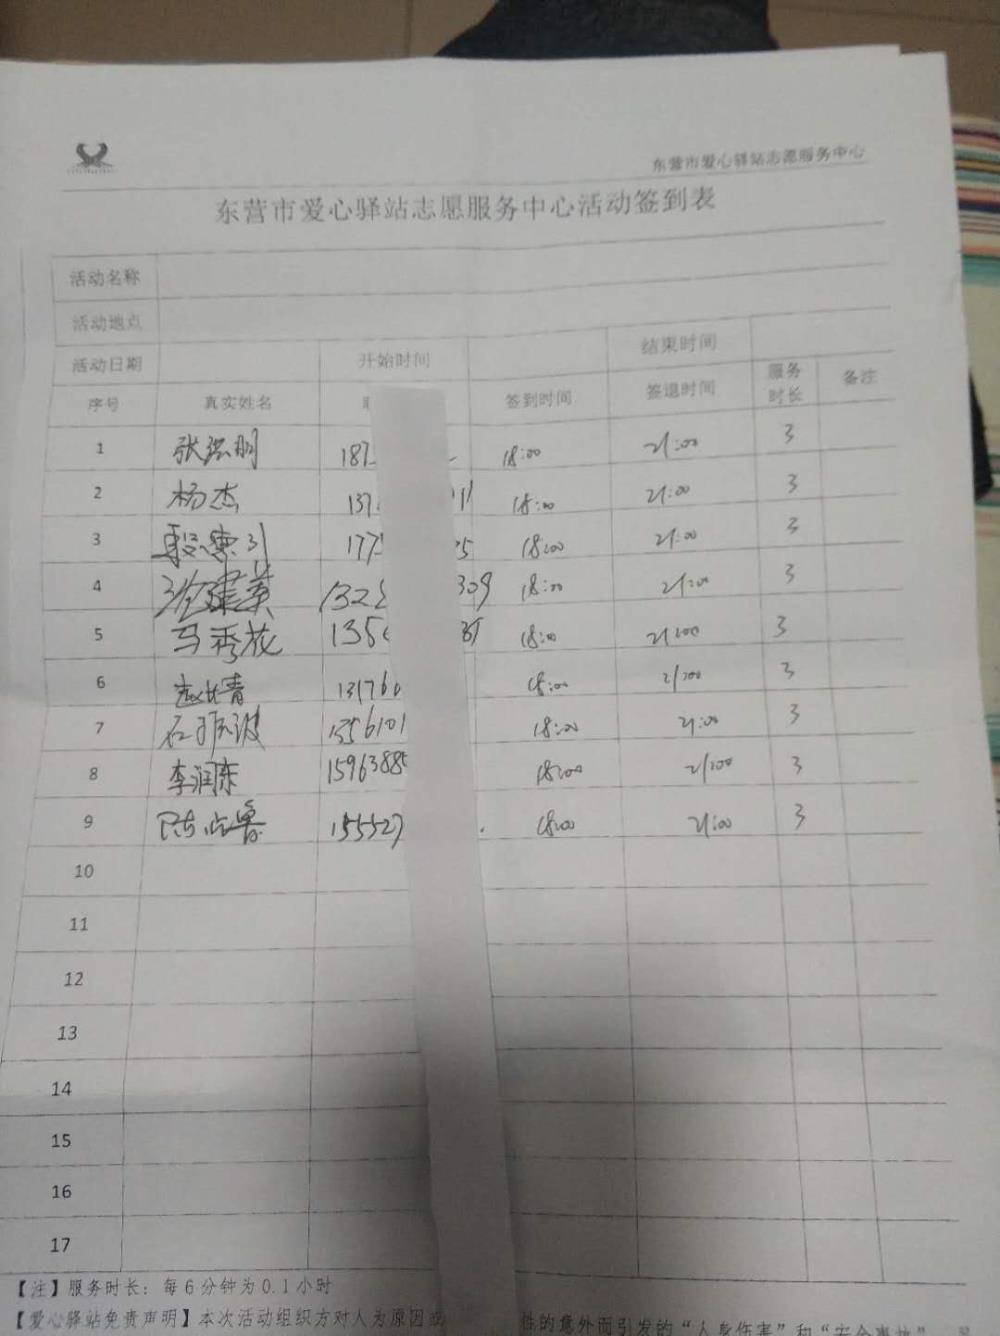 东营市爱心驿站志愿服务中心
东营市爱心驿站志愿服务中心活动签到表
活动名称
活动地点
活动日期 开始时间 结束时间
序号 真实姓名 签到时间 签退时间 服务时长 备注
1 张洪明 187 18:00 21:00 3
2 杨杰 137 11 18:00 21:00 3
3 177 5 18:00 21:00 3
4 建英 132 309 18:00 21:00 3
5 马秀花 135 18:00 21:00 3
6 赵长青 131760 18:00 21:00 3
7 石 波 1356101 18:00 21:00 3
8 李润东 15963885 18:00 21:00 3
9 陈 鲁 155527 18:00 21:00 3
10
11
12
13
14
15
16
17
【注】服务时长：每6分钟为0.1小时
【爱心驿站免责声明】本次活动组织方对人为原因或 性的意外而引发的“人身伤害”和“安全事故”